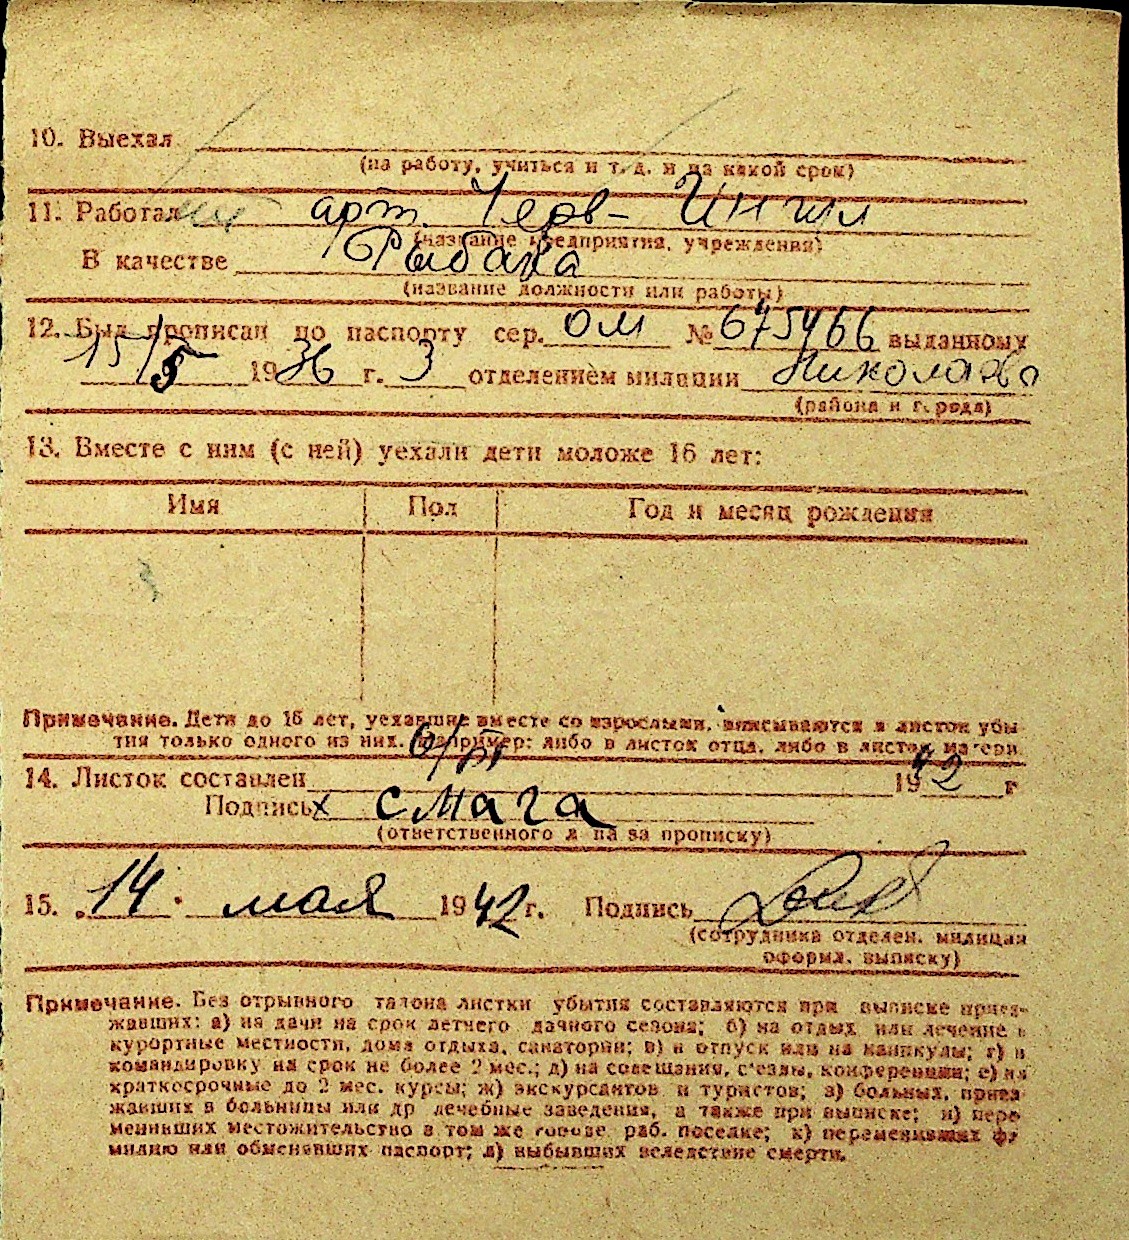 10. Выехал
(на работу, учиться и т. д. и на какой срок)
11. Работал арт. Черв-
(название предприятия, учреждения)
В качестве Рыбака
(название должности или работы)
12. Был прописан по паспорту сер. ОМ № 675466 выданному
15/5 1936 г. 3 отделением милиции
(района и города)
13. Вместе с ним (с ней) уехали дети моложе 16 лет:
Имя Пол Год и месяц рождения
Примечание. Дети до 16 лет, уехавшие вместе со взрослыми, вписываются в листок убы
тия только одного из них, например: либо в листок отца, либо в листок матери
14. Листок составлен 1942 г
Подпись х Смага
(ответственного л ца за прописку)
15. „14" мая 1942 г. Подпись
(сотрудника отделен. милиции
оформл. выписку)
Примечание. Без отрывного талона листки убытия составляются при выписке приез-
жавших: а) на дачи на срок летнего дачного сезона; б) на отдых или лечение в
курортные местности, дома отдыха, санатории; в) в отпуск или на каникулы; г) в
командировку на срок не более 2 мес.; д) на совещания, с'езды, конференции; е) на
краткосрочные до 2 мес. курсы; ж) экскурсантов и туристов; з) больных, приез
жавших в больницы или др лечебные заведения, а также при выписке; и) пере
менивших местожительство в том же городе раб. поселке; к) переменивших фа
милию или обменявших паспорт; л) выбывших вследствие смерти.